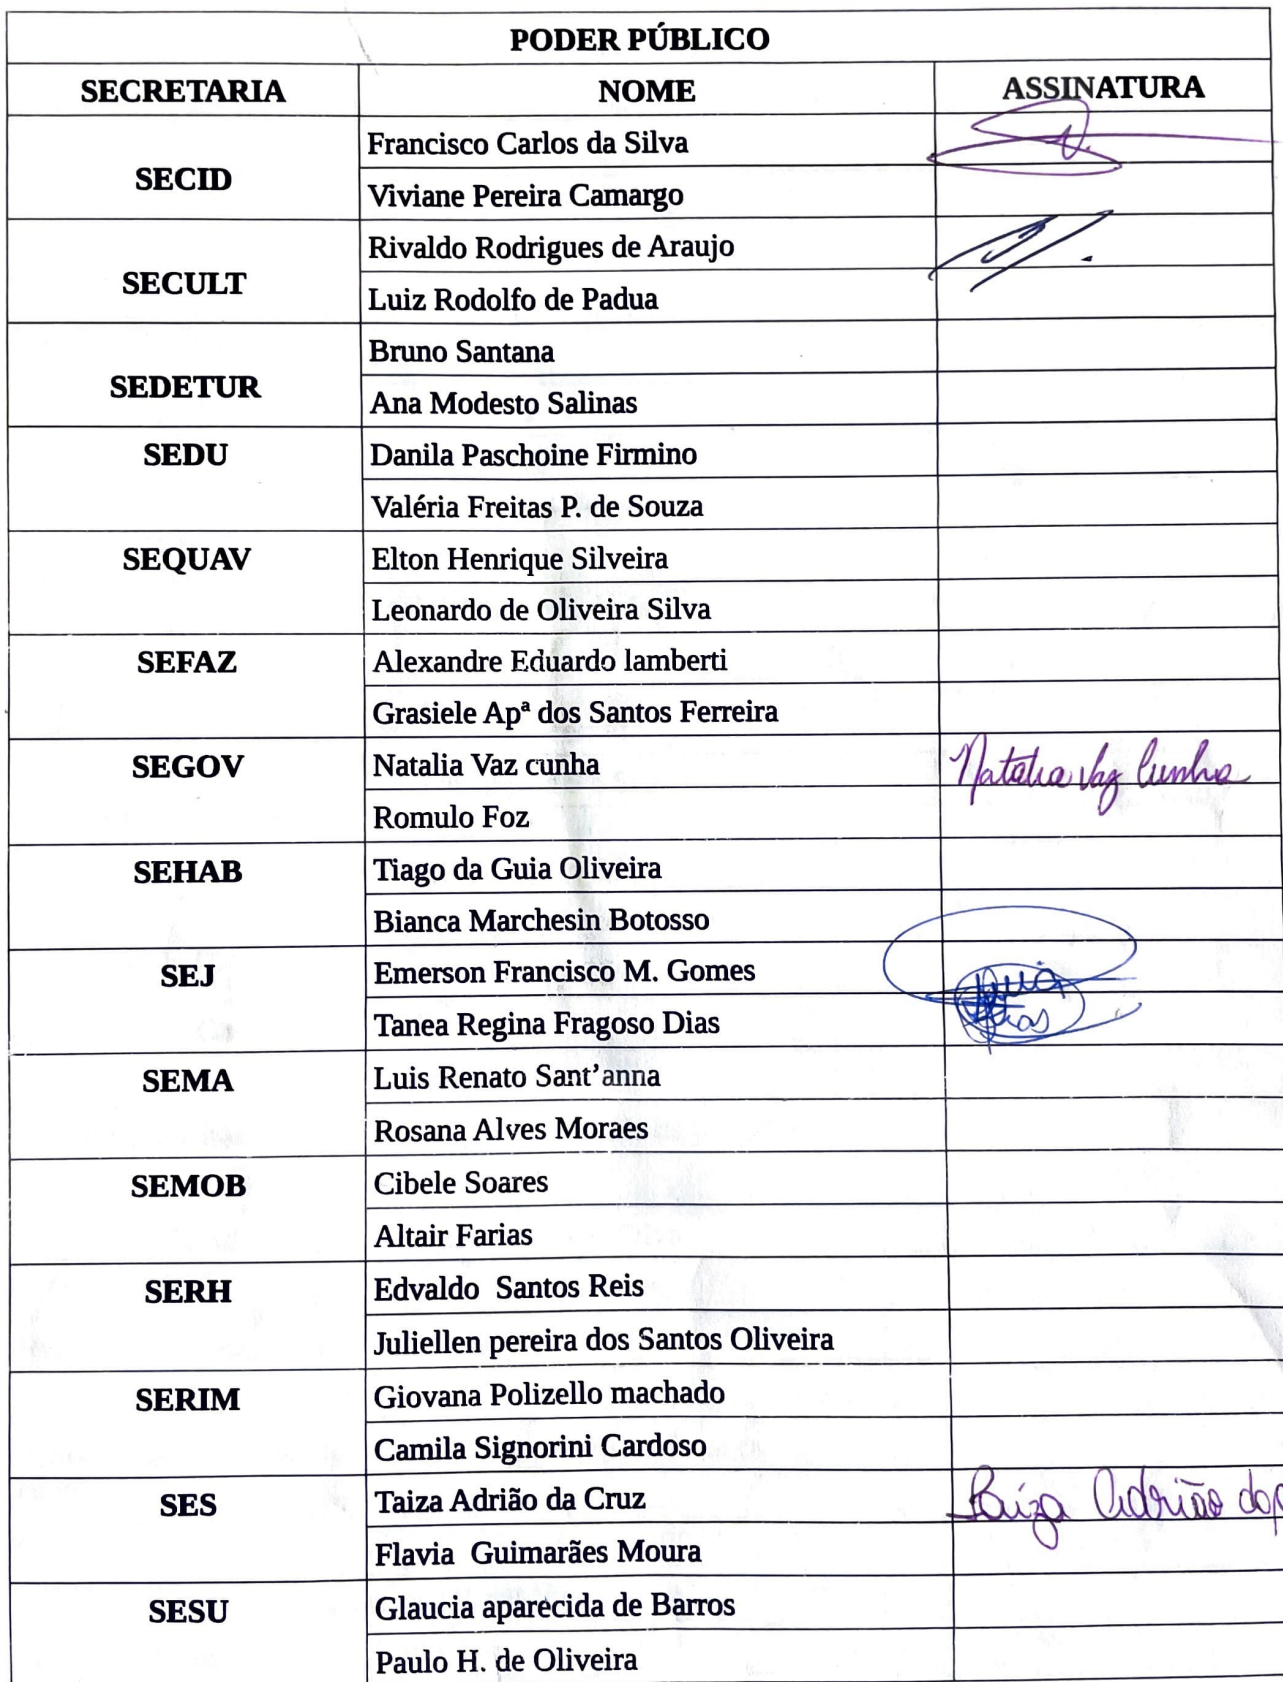 PODER PÚBLICO
SECRETARIA NOME ASSINATURA
SECID Francisco Carlos da Silva
Viviane Pereira Camargo
SECULT Rivaldo Rodrigues de Araujo
Luiz Rodolfo de Padua
SEDETUR Bruno Santana
Ana Modesto Salinas
SEDU Danila Paschoine Firmino
Valéria Freitas P. de Souza
SEQUAV Elton Henrique Silveira
Leonardo de Oliveira Silva
SEFAZ Alexandre Eduardo lamberti
Grasiele Apª dos Santos Ferreira
SEGOV Natalia Vaz cunha Natalia Vaz Cunha
Romulo Foz
SEHAB Tiago da Guia Oliveira
Bianca Marchesin Botosso
SEJ Emerson Francisco M. Gomes
Tanea Regina Fragoso Dias
SEMA Luis Renato Sant’anna
Rosana Alves Moraes
SEMOB Cibele Soares
Altair Farias
SERH Edvaldo Santos Reis
Juliellen pereira dos Santos Oliveira
SERIM Giovana Polizello machado
Camila Signorini Cardoso
SES Taiza Adrião da Cruz Taiza Adrião da
Flavia Guimarães Moura
SESU Glaucia aparecida de Barros
Paulo H. de Oliveira